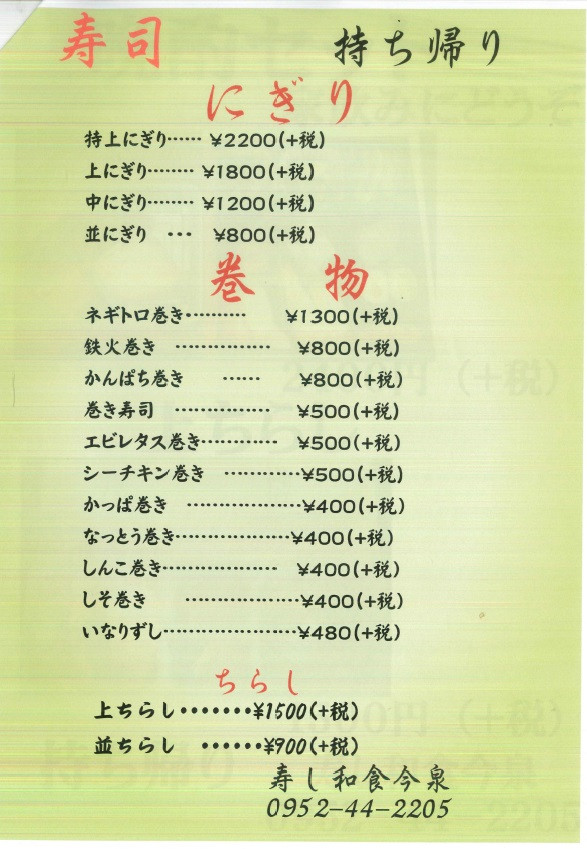 寿司　持ち帰り
にぎり
特上にぎり…… ¥2200(+税)
上にぎり……… ¥1800(+税)
中にぎり……… ¥1200(+税)
並にぎり　…　¥800(+税)
巻　物
ネギトロ巻き………… ¥1300(+税)
鉄火巻き　……………　¥800(+税)
かんぱち巻き　……　¥800(+税)
巻き寿司　……………　¥500(+税)
エビレタス巻き…………　¥500(+税)
シーチキン巻き　…………¥500(+税)
かっぱ巻き　………………¥400(+税)
なっとう巻き………………¥400(+税)
しんこ巻き………………　¥400(+税)
しそ巻き　………………¥400(+税)
いなりずし…………………¥480(+税)
ちらし
上ちらし・・・・・・・¥1500(+税)
並ちらし　・・・・・・¥900(+税)
寿し和食今泉
0952-44-2205